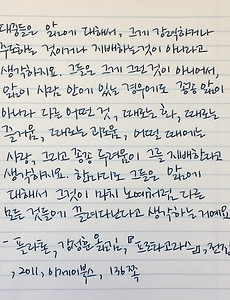 대중들은 앎에 대해서, 그게 강력하거나
주도하는 것이거나 지배하는 것이 아니라고
생각하지요. 그들은 그게 그런 것이 아니어서,
앎이 사람 안에 있는 경우에도 종종 앎이
아니라 다른 어떤 것, 때로는 화, 때로는
즐거움, 때로는 괴로움, 어떤 때에는
사랑, 그리고 종종 두려움이 그를 지배한다고
생각하지요. 한마디로 그들은 앎에
대해서 그것이 마치 노예처럼 다른
모든 것들에 끌려다닌다고 생각하는 거예요.
- 플라톤, 강성훈 옮김, 『프로타고라스』,
, 2011, 이제이북스, 136쪽